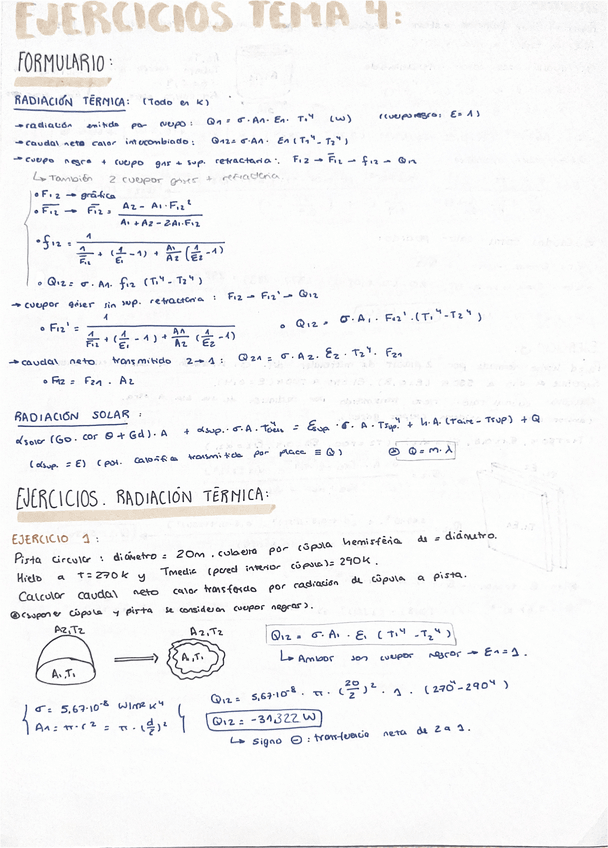 EJERCICIOS TEMA 4:
FORMULARIO:
RADIACIÓN TÉRMICA: (Todo en K)
→ radiación emitida por cuerpo: Q1 = σ·A1·E1·T1⁴ (W) (cuerpo negro, E=1)
→ caudal neto calor intercambiado: Q12 = σ·A1·E1 (T1⁴-T2⁴)
→ cuerpo negro + cuerpo gris + sup. refractaria: F12 → F̅12 → f12 → Q12
↳ También 2 cuerpos grises + refractaria
• F12 → gráfica
• F̅12 → F̅12 = A2 - A1·F12² / A1 + A2 - 2A1·F12
• f12 = 1 / 1/F̅12 + (1/E1 -1) + A1/A2 (1/E2 -1)
• Q12 = σ·A1·f12 (T1⁴-T2⁴)
→ cuerpos grises sin sup. refractaria: F12 → F12' → Q12
• F12' = 1 / 1/F12 + (1/E1 -1) + A1/A2 (1/E2 -1) • Q12 = σ·A1·F12'·(T1⁴-T2⁴)
→ caudal neto transmitido 2→1: Q21 = σ·A2·E2·T2⁴·F21
• F12 = F21·A2
RADIACIÓN SOLAR:
αsolar (G0·cos θ + Gd)·A + αsup·σ·A·Tcielo⁴ = Esup·σ·A·Tsup⁴ + h·A·(Taire - Tsup) + Q
(αsup = E) (pot. calorífica transmitida por placa ≡ Q) ⊛ Q = m·λ
EJERCICIOS. RADIACIÓN TÉRMICA:
EJERCICIO 1:
Pista circular: diámetro = 20m. cubierta por cúpula hemisférica de = diámetro.
Hielo a T=270K y Tmedia (pared interior cúpula)= 290K.
Calcular caudal neto calor transferido por radiación de cúpula a pista.
⊛(suponer cúpula y pista se consideran cuerpos negros).
A2,T2 A2,T2 Q12 = σ·A1·E1 (T1⁴-T2⁴)
A1,T1 A1,T1 ↳ Ambos son cuerpos negros → E1=1.
σ = 5,67·10⁻⁸ W/m² K⁴ Q12 = 5,67·10⁻⁸ · π·(20/2)² · 1 · (270⁴-290⁴)
A1 = π·r² = π·(d/2)² Q12 = -31,322 W
↳ signo ⊖: transferencia neta de 2 a 1.